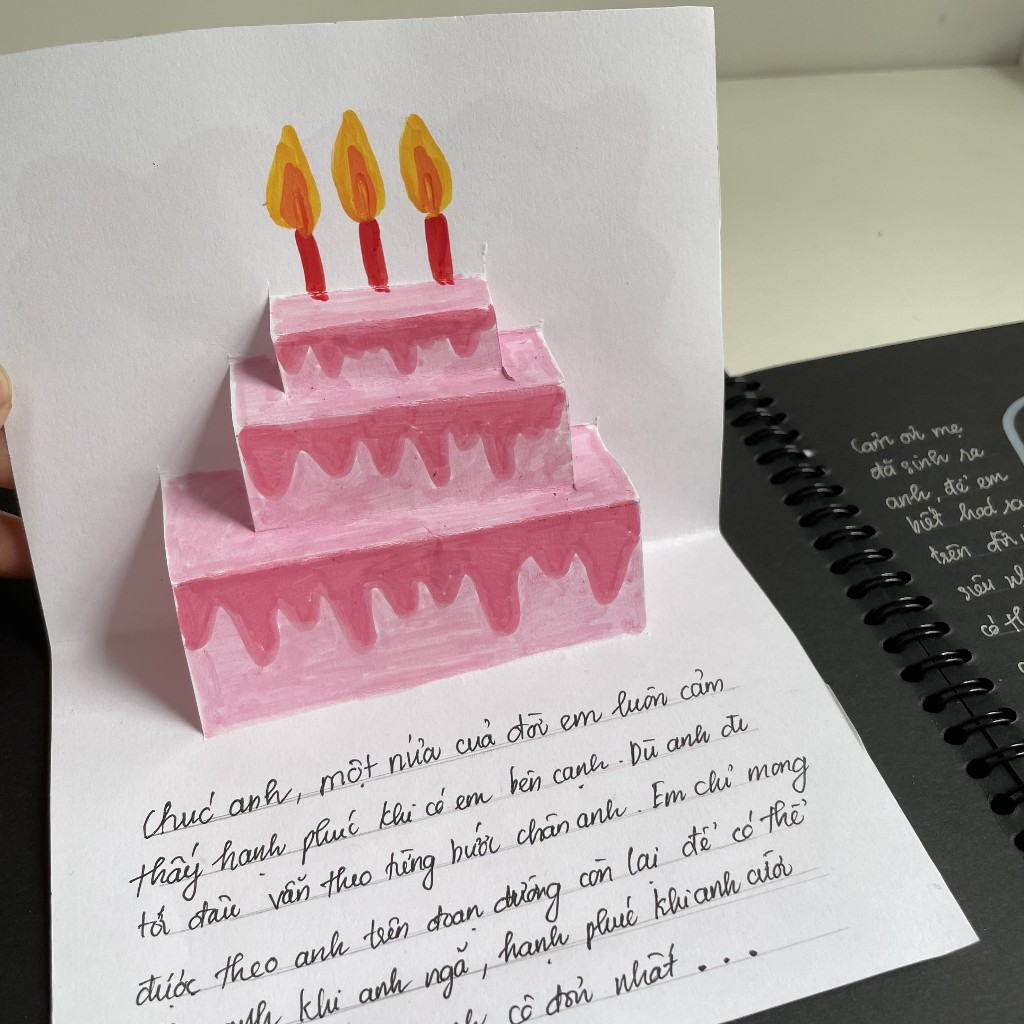 Chúc anh, một nửa của đời em luôn cảm
thấy hạnh phúc khi có em bên cạnh. Dù anh đi
tới đâu vẫn theo từng bước chân anh. Em chỉ mong
được theo anh trên đoạn đường còn lại để có thể
khi anh ngã, hạnh phúc khi anh cười
cô đơn nhất...
Cảm ơn mẹ
đã sinh ra
anh, để em
biết hoá ra
trên đời
siêu
có